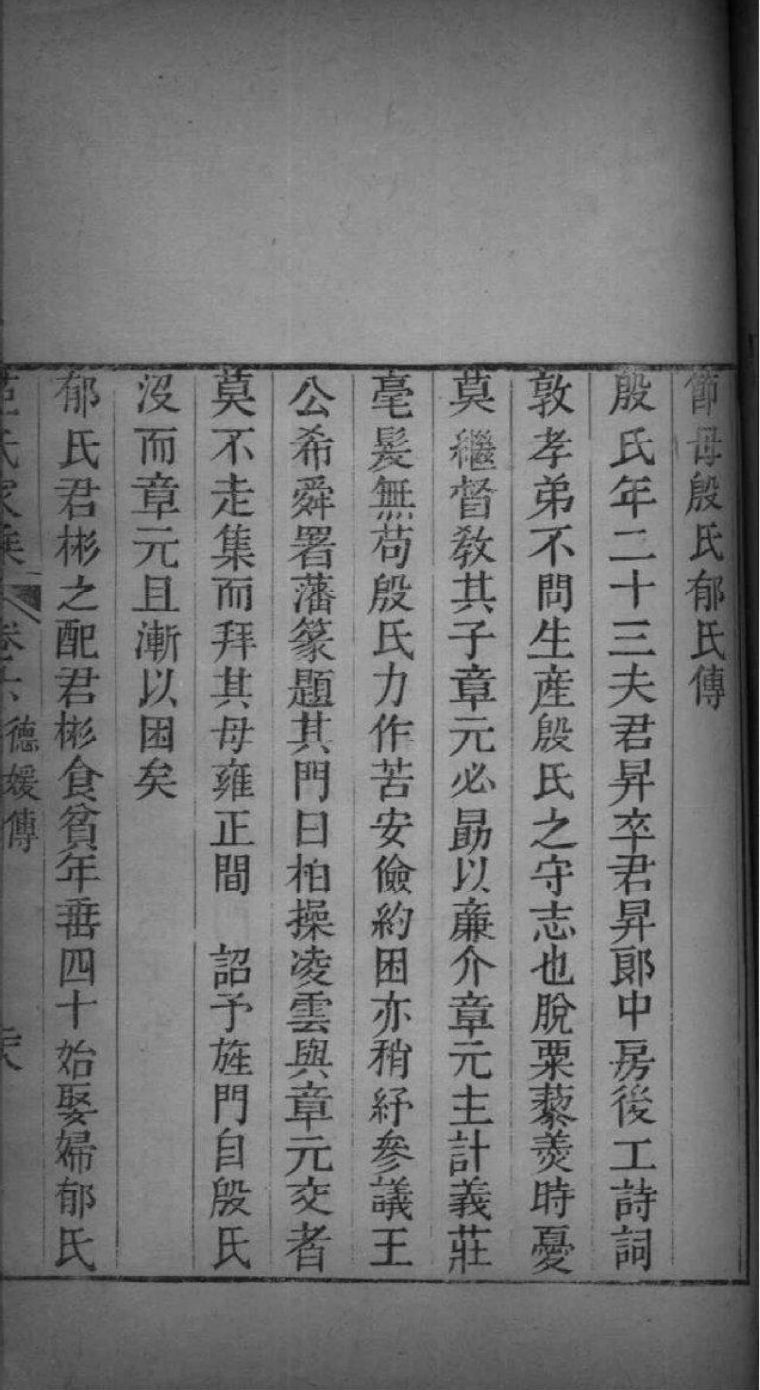 節母殷氏郁氏傳
殷氏年二十三夫君昇卒君昇郎中房後工詩詞
敦孝弟不問生産殷氏之守志也脫粟藜羮時憂
莫繼督敎其子章元必勗以廉介章元主計義莊
毫髮無茍殷氏力作苦安儉約困亦稍紓參議王
公希舜署藩篆題其門曰柏操凌雲與章元交者
莫不走集而拜其母雍正間　詔予旌門自殷氏
沒而章元且漸以困矣
郁氏君彬之配君彬食貧年垂四十始娶婦郁氏
氏家乘 卷六 德媛傳